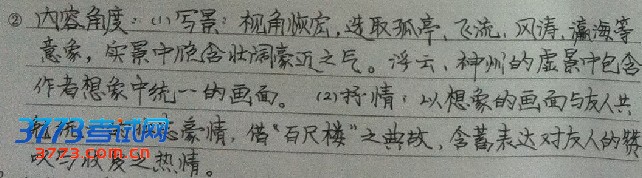 ② 内容角度：(1)写景：视角恢宏，选取孤亭、飞流、风涛、瀛海等
意象，实景中隐含壮阔豪迈之气。浮云、神州的虚景中包含
作者想象中统一的画面。(2)抒情：以想象的画面与友人共
豪情，借“百尺楼”之典故，含蓄表达对友人的赞
3773考试网
3773.com.cn
之热情。